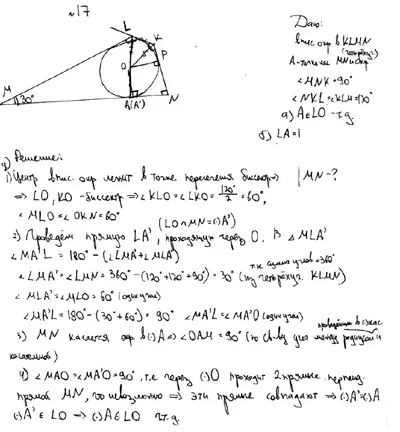 №17
Дано:
впис. окр в KLMN
(четырёхуг.)
A - точка MN и окр
∠MNK = 90°
∠NKL = ∠KLM = 120°
а) A ∈ LO - т.д.
б) LA = 1
MN - ?
L
K
P
O
M
30°
A(A')
N
Решение:
1) Центр впис. окр лежит в точке пересечения биссектр ⇒
⇒ LO, KO - биссектр ⇒ ∠KLO = ∠LKO = 120°/2 = 60°,
∠MLO = ∠OKN = 60°
(LO ∩ MN = (·)A')
2) Проведём прямую LA', проходящую через O. В △MLA'
∠MA'L = 180° - (∠LMA' + ∠MLA')
∠LMA' = ∠LMN = 360° - (120° + 120° + 90°) = 30° (из четырёхуг. KLMN)
т.к. сумма углов = 360°
∠MLA' = ∠MLO = 60° (один угол)
∠MA'L = 180° - (30° + 60°) = 90° ∠MA'L = ∠MA'O (один угол)
3) MN касается окр в (·)A ⇒ ∠OAM = 90° (по св-ву угла между радиусом и
касательной)
4) ∠MAO = ∠MA'O = 90°, т.е. через (·)O проходит 2 прямые, перпенд.
прямой MN, что невозможно ⇒ эти прямые совпадают ⇒ (·)A' = (·)A
(·)A' ∈ LO ⇒ (·)A ∈ LO ч.т.д.